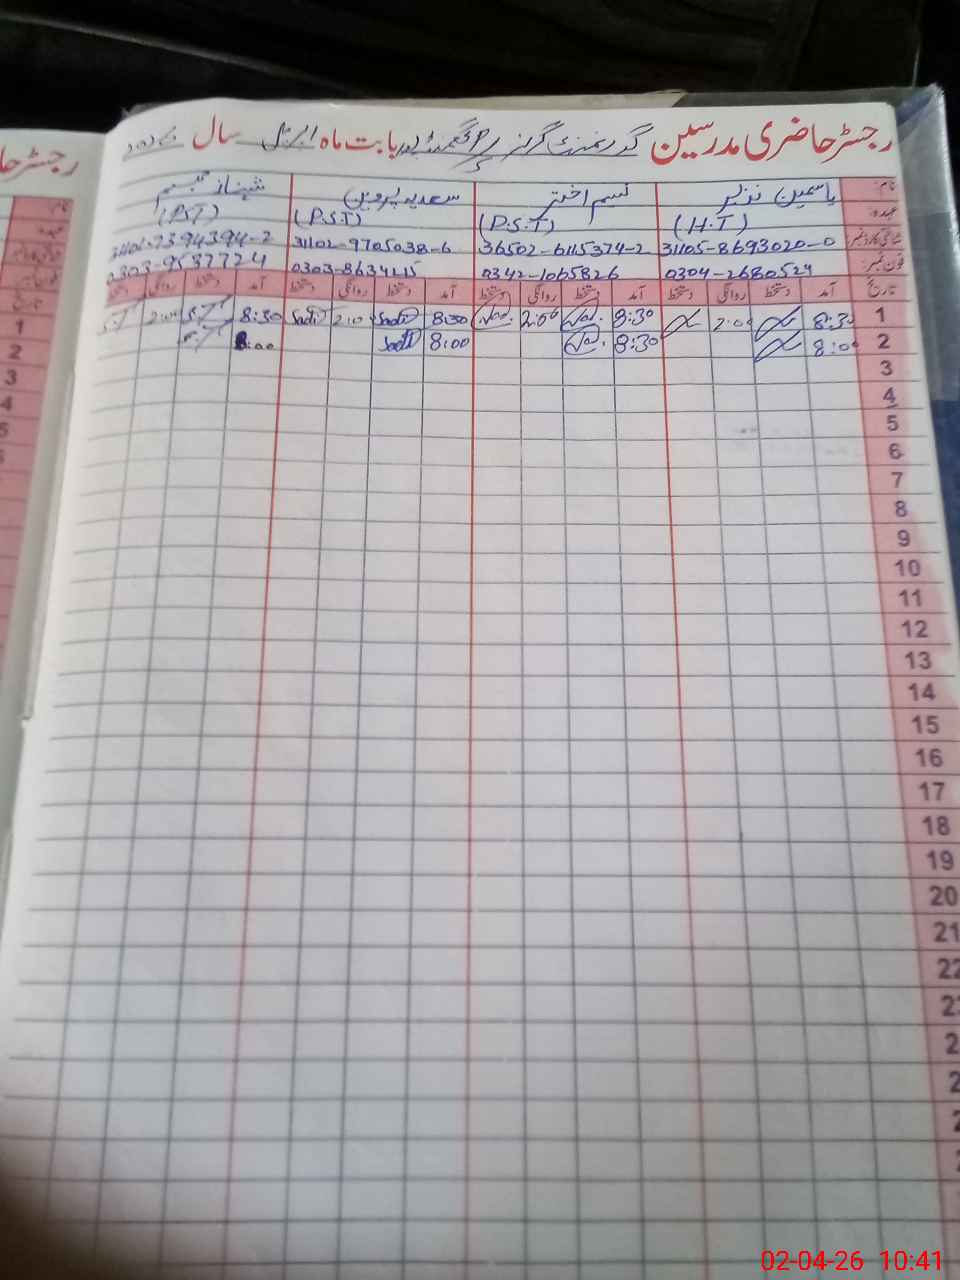 رجسٹر حاضری مدرسین گورنمنٹ گرلز بابت ماہ اپریل سال 2026
نام: یاسمین نذیر نسیم اختر سعدیہ پروین شہناز تبسم
عہدہ: (H.T) (P.S.T) (P.S.T) (P.S.T)
شناختی کارڈ نمبر: 31105-8693020-0 36502-6115374-2 31102-9705038-6 31101-7394394-2
فون نمبر: 0304-2680529 0342-1065826 0303-8634215 0303-9537724
تاریخ آمد دستخط روانگی دستخط آمد دستخط روانگی دستخط آمد دستخط روانگی دستخط آمد دستخط روانگی دستخط
1 8:30 2:00 8:30 2:00 8:30 Sadi 2:00 Sadi 8:30 S.T 2:00 S.T
2 8:00 8:30 8:00 Sadi 8:00
3
4
5
6
7
8
9
10
11
12
13
14
15
16
17
18
19
20
21
22
رجسٹر حا
نام:
عہدہ:
تاریخ
1
2
3
4
5
02-04-26 10:41